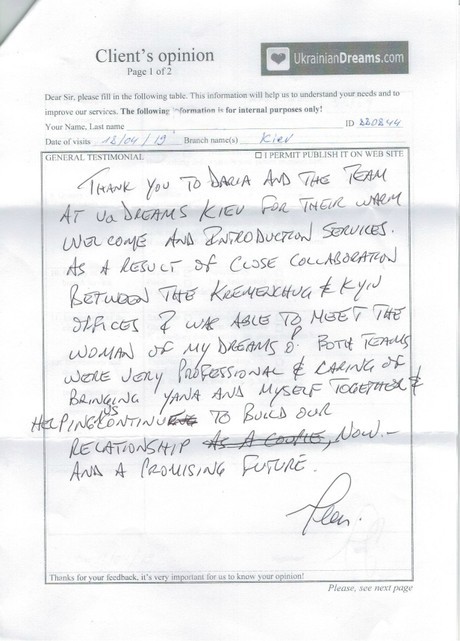 Client's opinion
Page 1 of 2
UkrainianDreams.com
Dear Sir, please fill in the following table. This information will help us to understand your needs and to
improve our services. The following information is for internal purposes only!
Your Name, Last name
ID 220844
Date of visits 18/04/19 Branch name(s) Kiev
GENERAL TESTIMONIAL ☐ I PERMIT PUBLISH IT ON WEB SITE
THANK YOU TO DARIA AND THE TEAM
AT UA DREAMS KIEV FOR THEIR WARM
WELCOME AND INTRODUCTION SERVICES.
AS A RESULT OF CLOSE COLLABORATION
BETWEEN THE KREMENCHUG & KYIV
OFFICES I WAS ABLE TO MEET THE
WOMAN OF MY DREAMS BOTH TEAMS
WERE VERY PROFESSIONAL & CARING OF
BRINGING YANA AND MYSELF TOGETHER &
HELPING US CONTINUE TO BUILD OUR
RELATIONSHIP AS A COUPLE, NOW.-
AND A PROMISING FUTURE.
Thanks for your feedback, it's very important for us to know your opinion!
Please, see next page